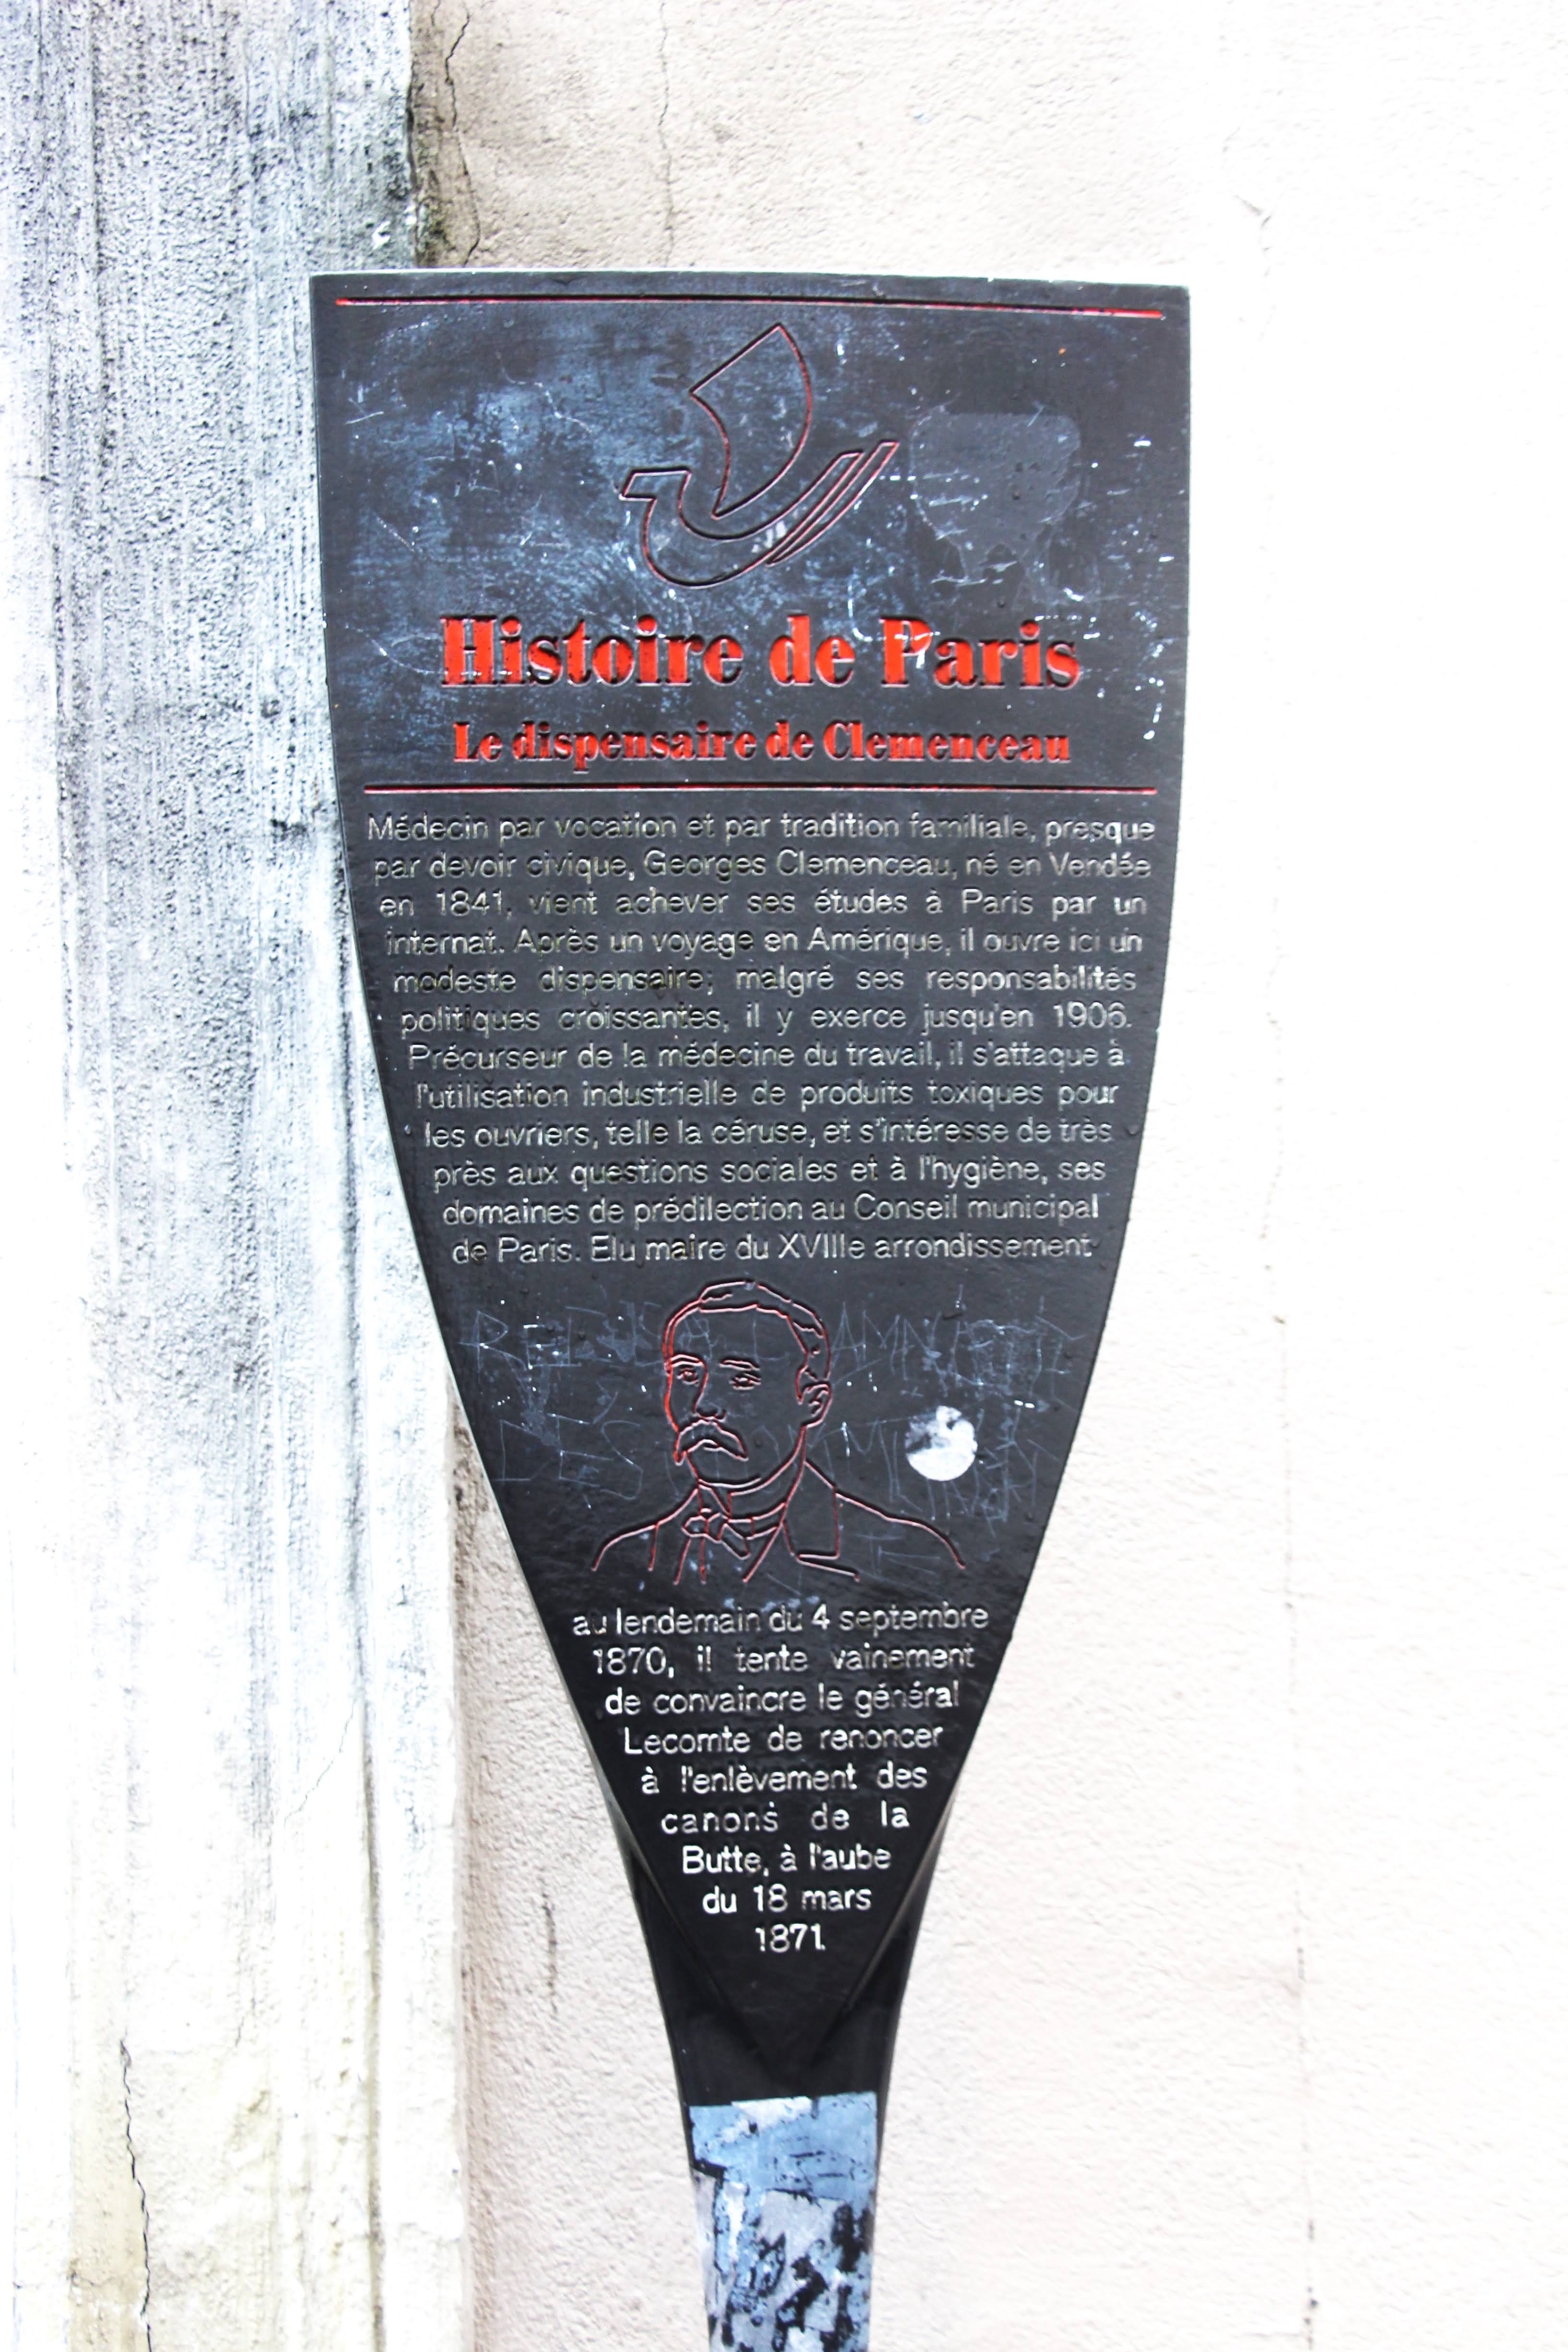 Histoire de Paris
Le dispensaire de Clemenceau
Médecin par vocation et par tradition familiale, presque
par devoir civique, Georges Clemenceau, né en Vendée
en 1841, vient achever ses études à Paris par un
internat. Après un voyage en Amérique, il ouvre ici un
modeste dispensaire; malgré ses responsabilités
politiques croissantes, il y exerce jusqu'en 1906.
Précurseur de la médecine du travail, il s'attaque à
l'utilisation industrielle de produits toxiques pour
les ouvriers, telle la céruse, et s'intéresse de très
près aux questions sociales et à l'hygiène, ses
domaines de prédilection au Conseil municipal
de Paris. Elu maire du XVIIIe arrondissement
DES
au lendemain du 4 septembre
1870, il tente vainement
de convaincre le général
Lecomte de renoncer
à l'enlèvement des
canons de la
Butte, à l'aube
du 18 mars
1871.